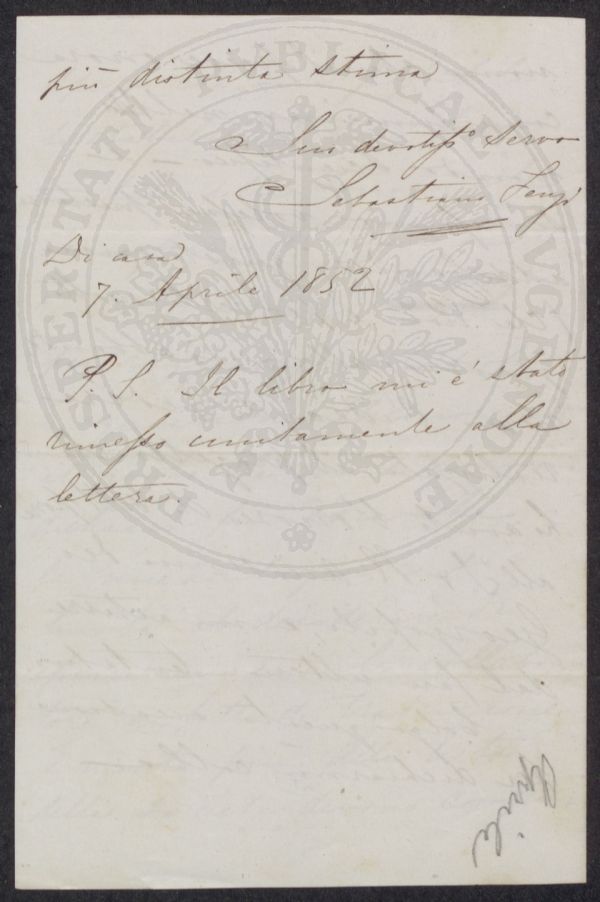 più distinta stima
Suo devotiss.o Servo
Sebastiano
Di casa
7. Aprile 1852
P. S. Il libro mi è stato
rimesso unitamente alla
lettera.
Aprile
PROSPERITATI PUBLICAE AVGENDAE